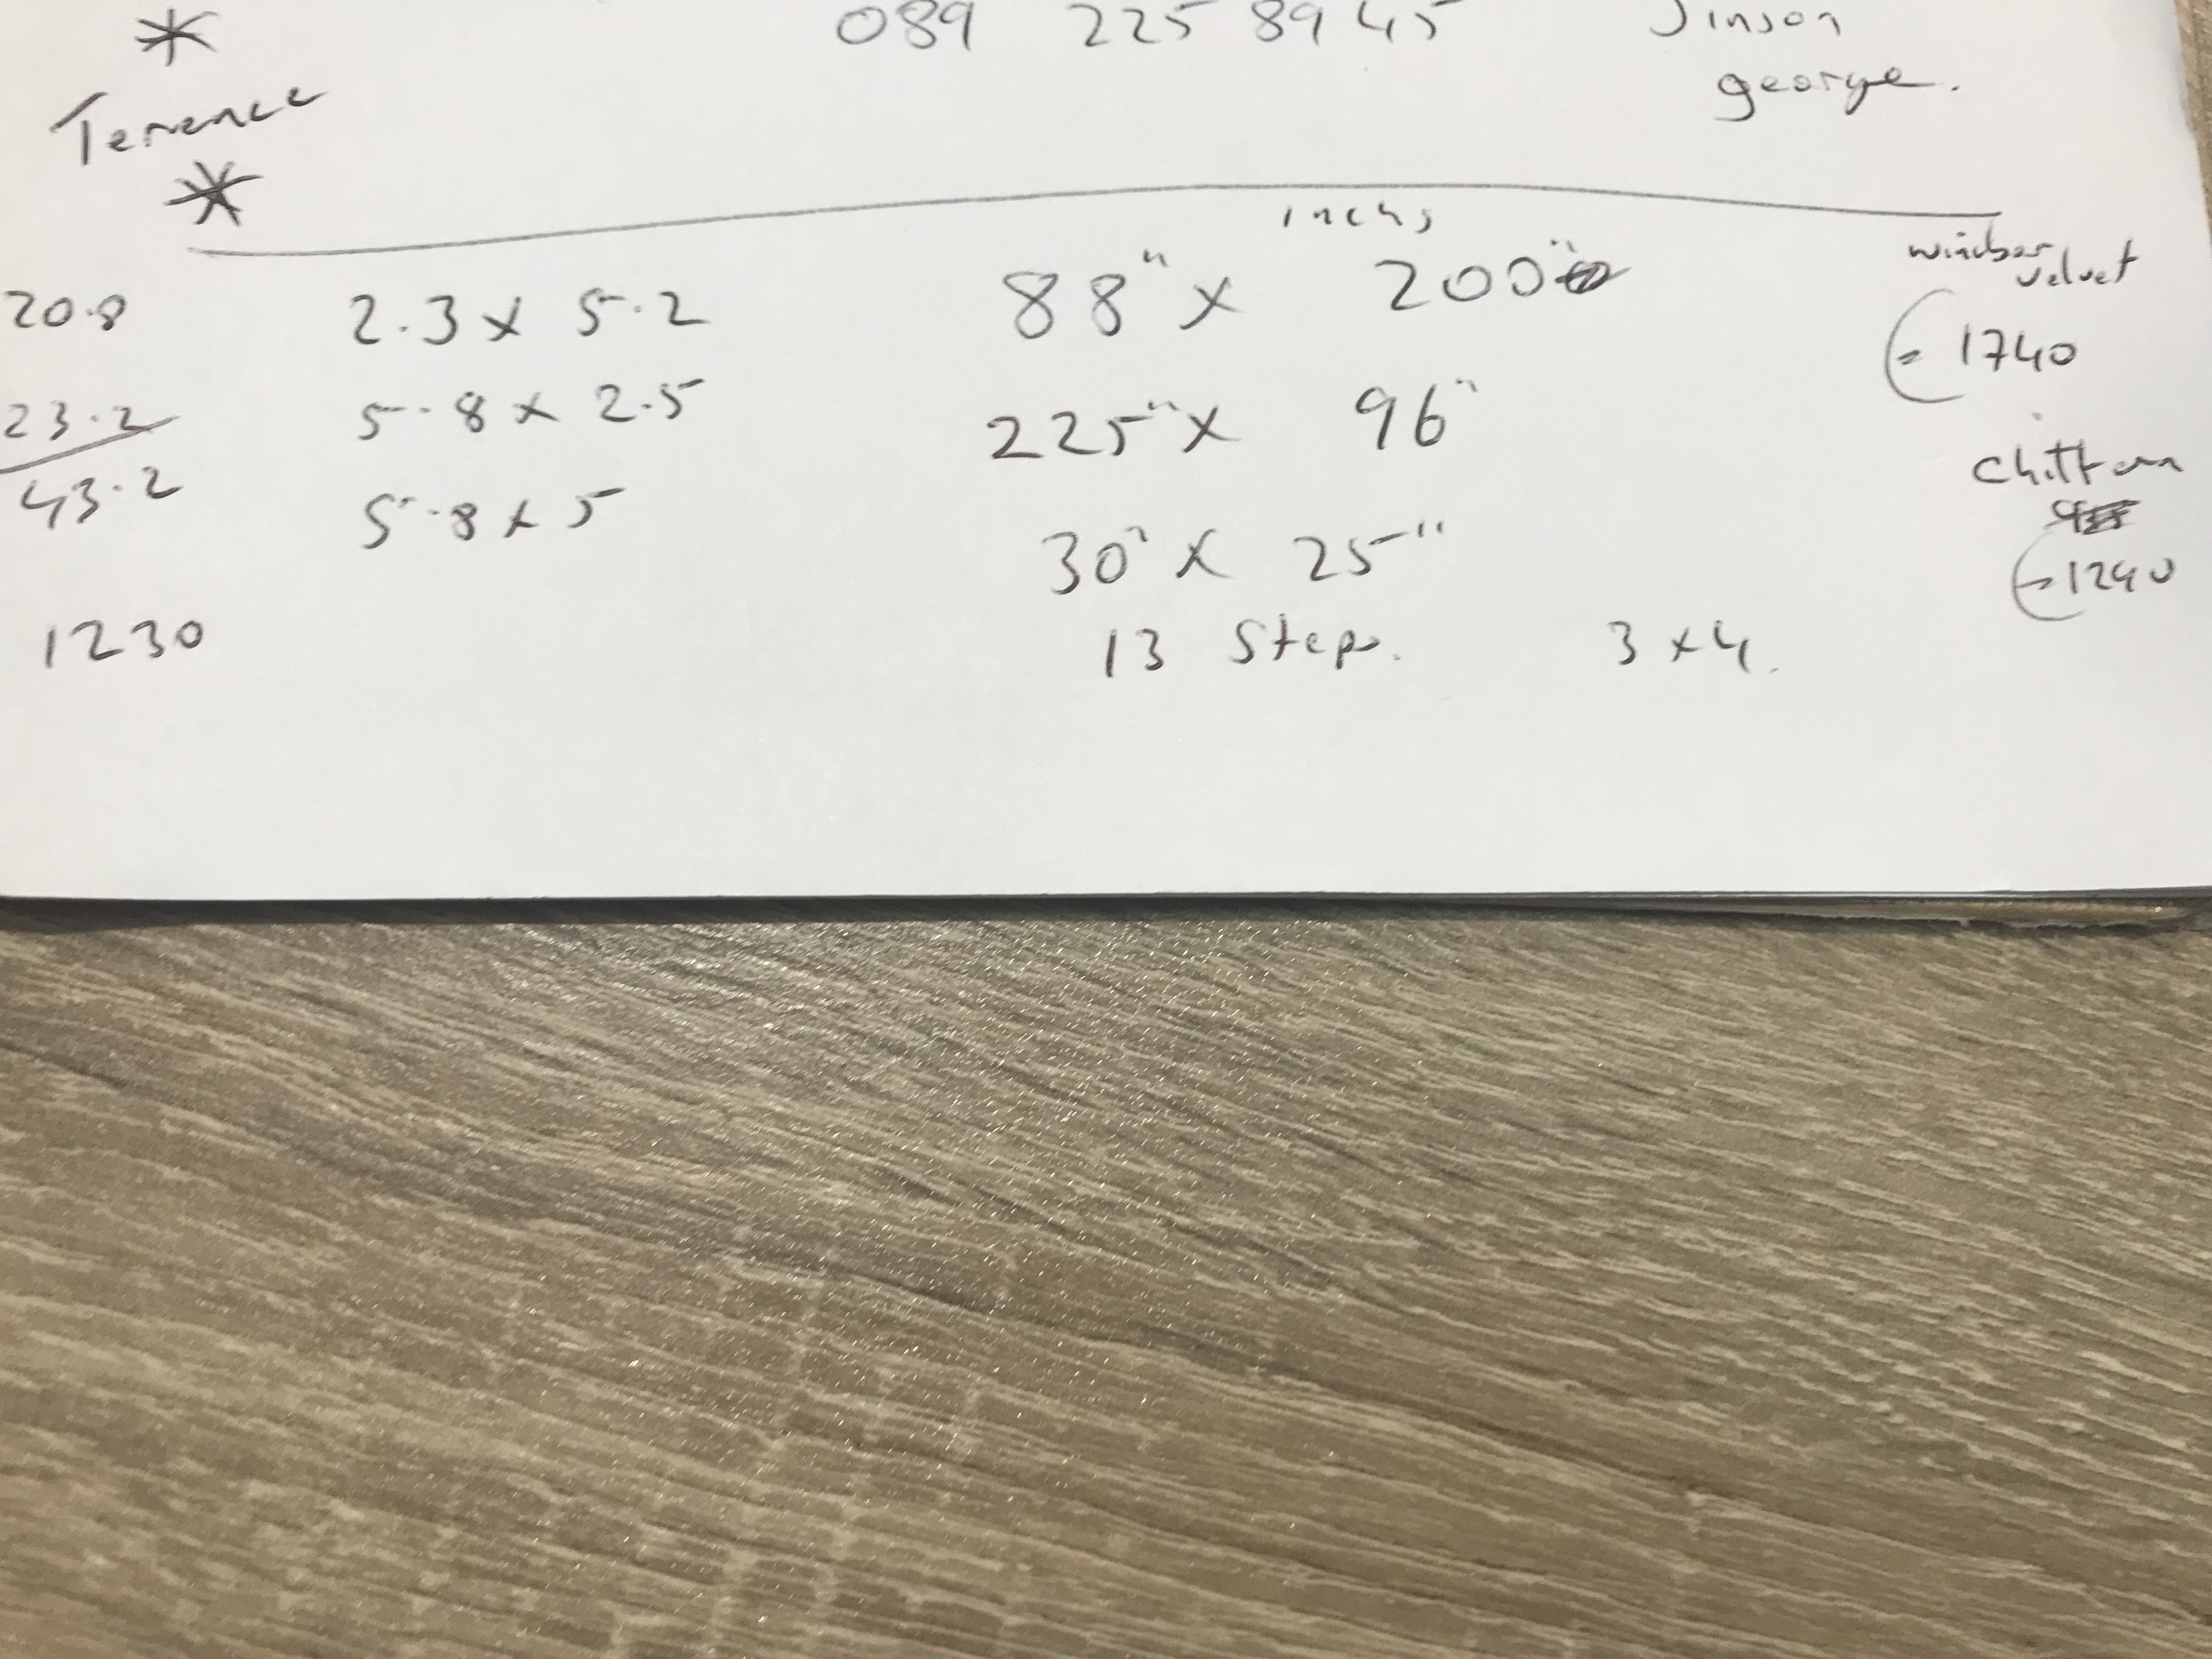 * 089 225 89 45 Jinson
Terence george.
*
inchs
windsor velvet
20.8 2.3 x 5.2 88" x 200"
= 1740
23.2 5.8 x 2.5 225" x 96"
43.2 5.8 x 5 chittern
30" x 25" = 1240
1230 13 Steps. 3 x 4.